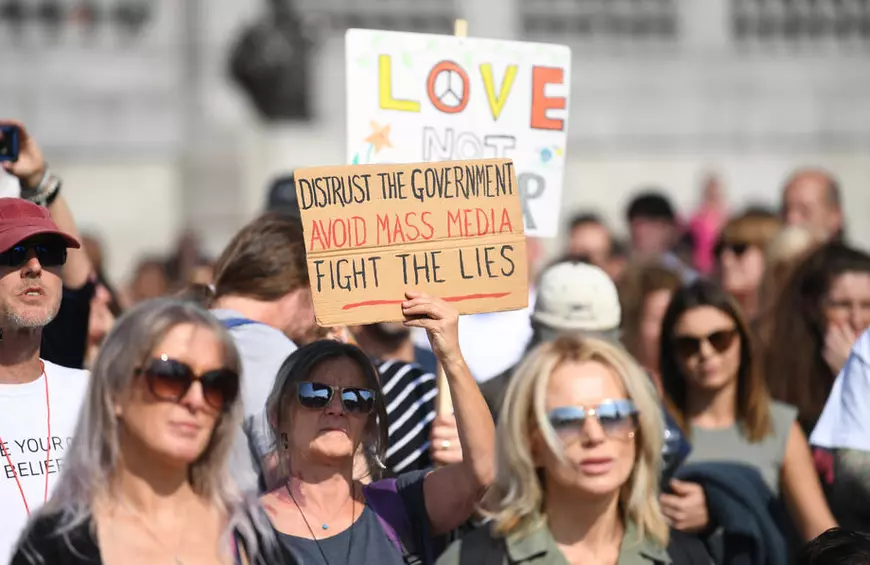 LOVE
NOT
R
DISTRUST THE GOVERNMENT
AVOID MASS MEDIA
FIGHT THE LIES
E YOUR
BELIE